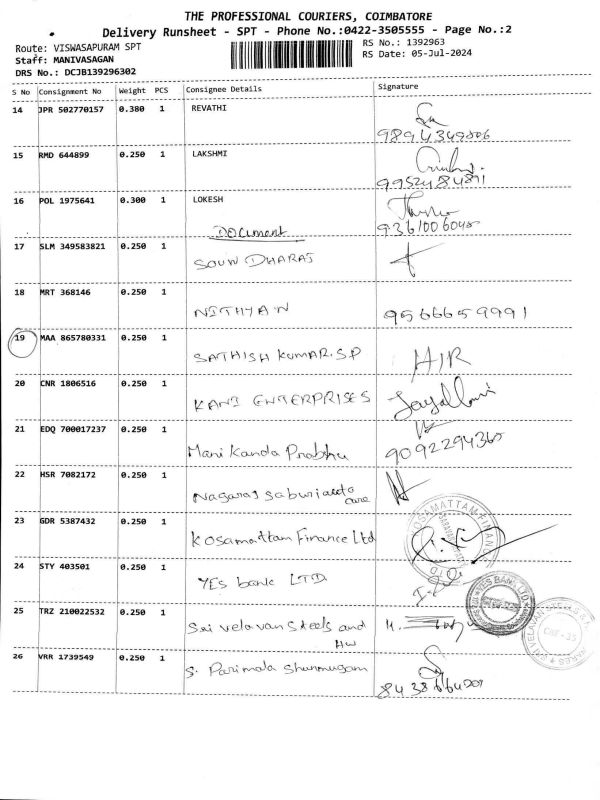 THE PROFESSIONAL COURIERS, COIMBATORE
Delivery Runsheet - SPT - Phone No.:0422-3505555 - Page No.:2
Route: VISWASAPURAM SPT
RS No.: 1392963
Staff: MANIVASAGAN
RS Date: 05-Jul-2024
DRS No.: DCJB139296302
S No Consignment No Weight PCS Consignee Details Signature
14 JPR 502770157 0.380 1 REVATHI
15 RMD 644899 0.250 1 LAKSHMI
9952484891
16 POL 1975641 0.300 1 LOKESH
Document
17 SLM 349583821 0.250 1 SOUNDHARAJ
18 MRT 368146 0.250 1 NITHYAN 9566659991
19 MAA 865780331 0.250 1 SATHISH KUMAR.S.P
20 CNR 1806516 0.250 1 KANI ENTERPRISES
21 EDQ 700017237 0.250 1 Mani Kanda Prabhu
9092294365
22 HSR 7082172 0.250 1 Nagaraj
care
23 GDR 5387432 0.250 1 Kosamattam Finance Ltd
24 STY 403501 0.250 1 YES bank LTD
25 TRZ 210022532 0.250 1 Sri velavan Steels and
HW
26 VRR 1739549 0.250 1 S. Parimala Shanmugam